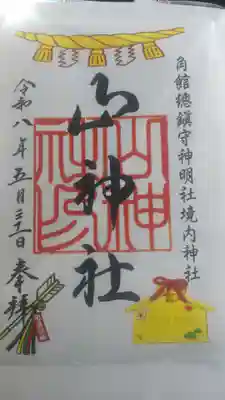 角館總鎮守神明社境内神社
山神社
令和八年五月三十一日奉拜